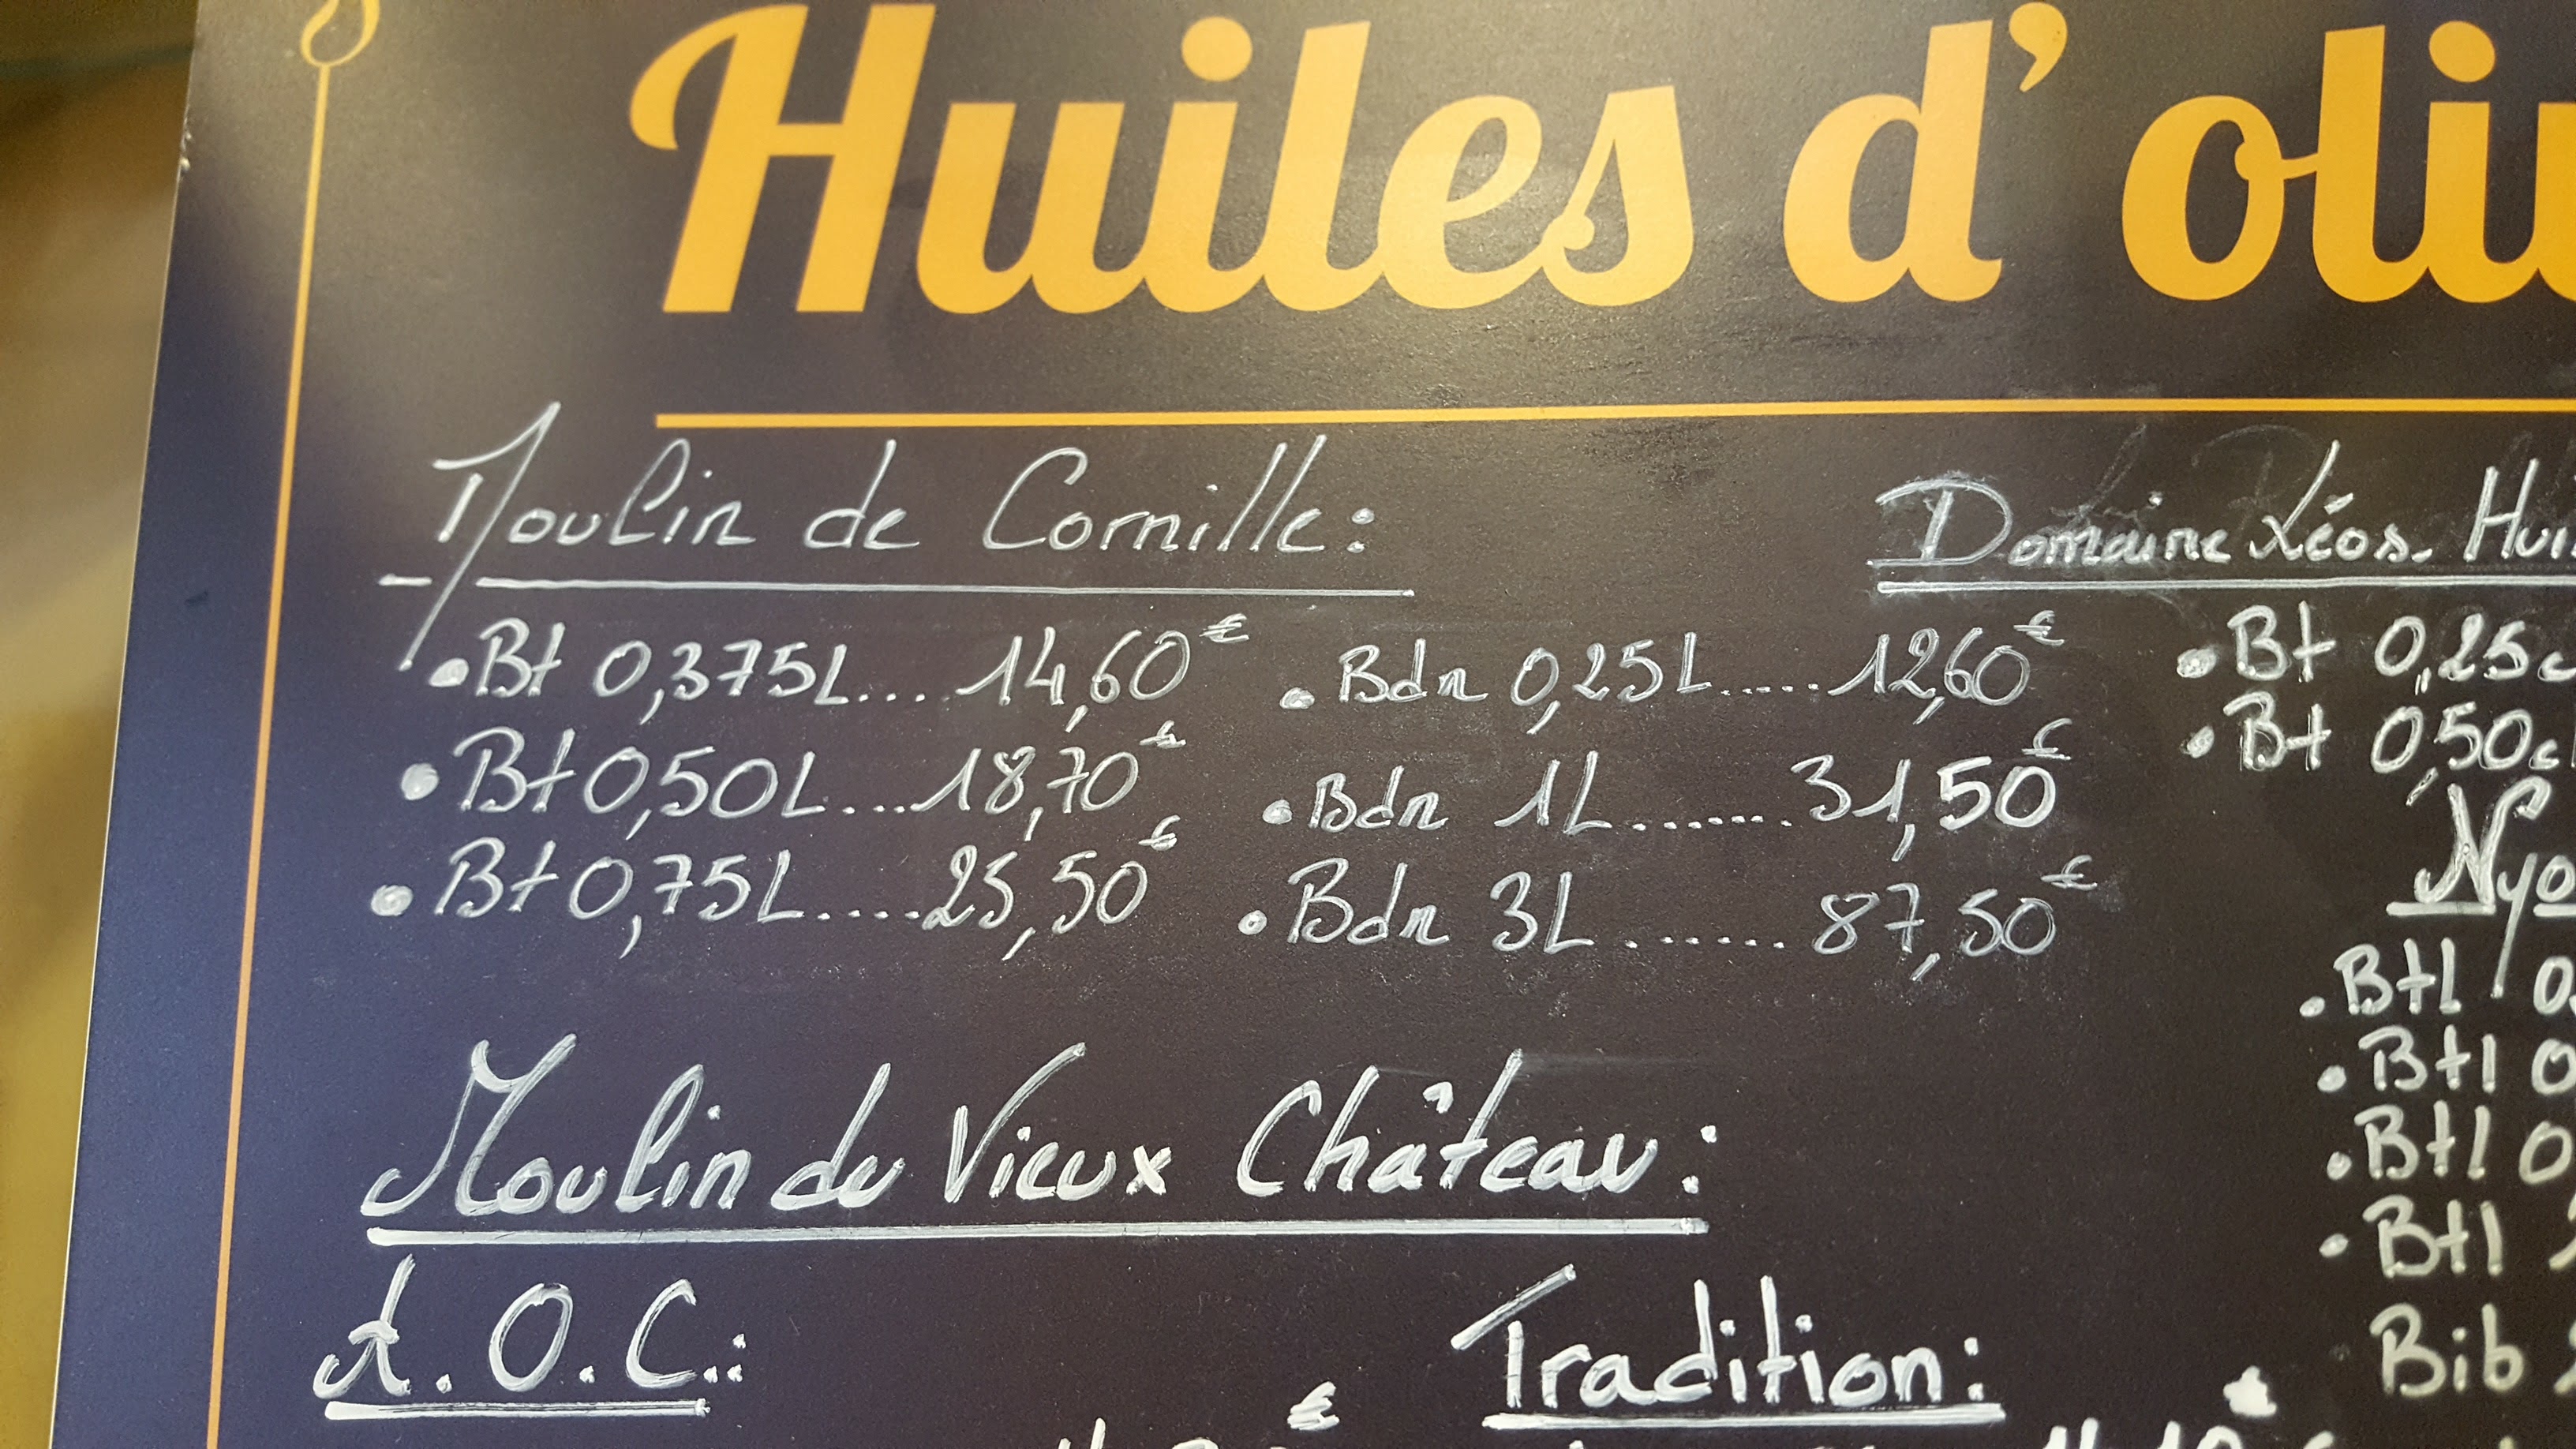 Huiles d'
Moulin de Cornille:
• Bt 0,375L... 14,60€
• Bt 0,50L... 18,70€
• Bt 0,75L.... 25,50€
• Bdn 0,25L..... 12,60€
• Bdn 1L....... 31,50€
• Bdn 3L....... 87,50€
Moulin du Vieux Château:
A.O.C.:
Tradition:
Domaine Léos.
• Bt 0,25c
• Bt 0,50cl
• Btl
• Btl
• Btl
• Btl
Bib